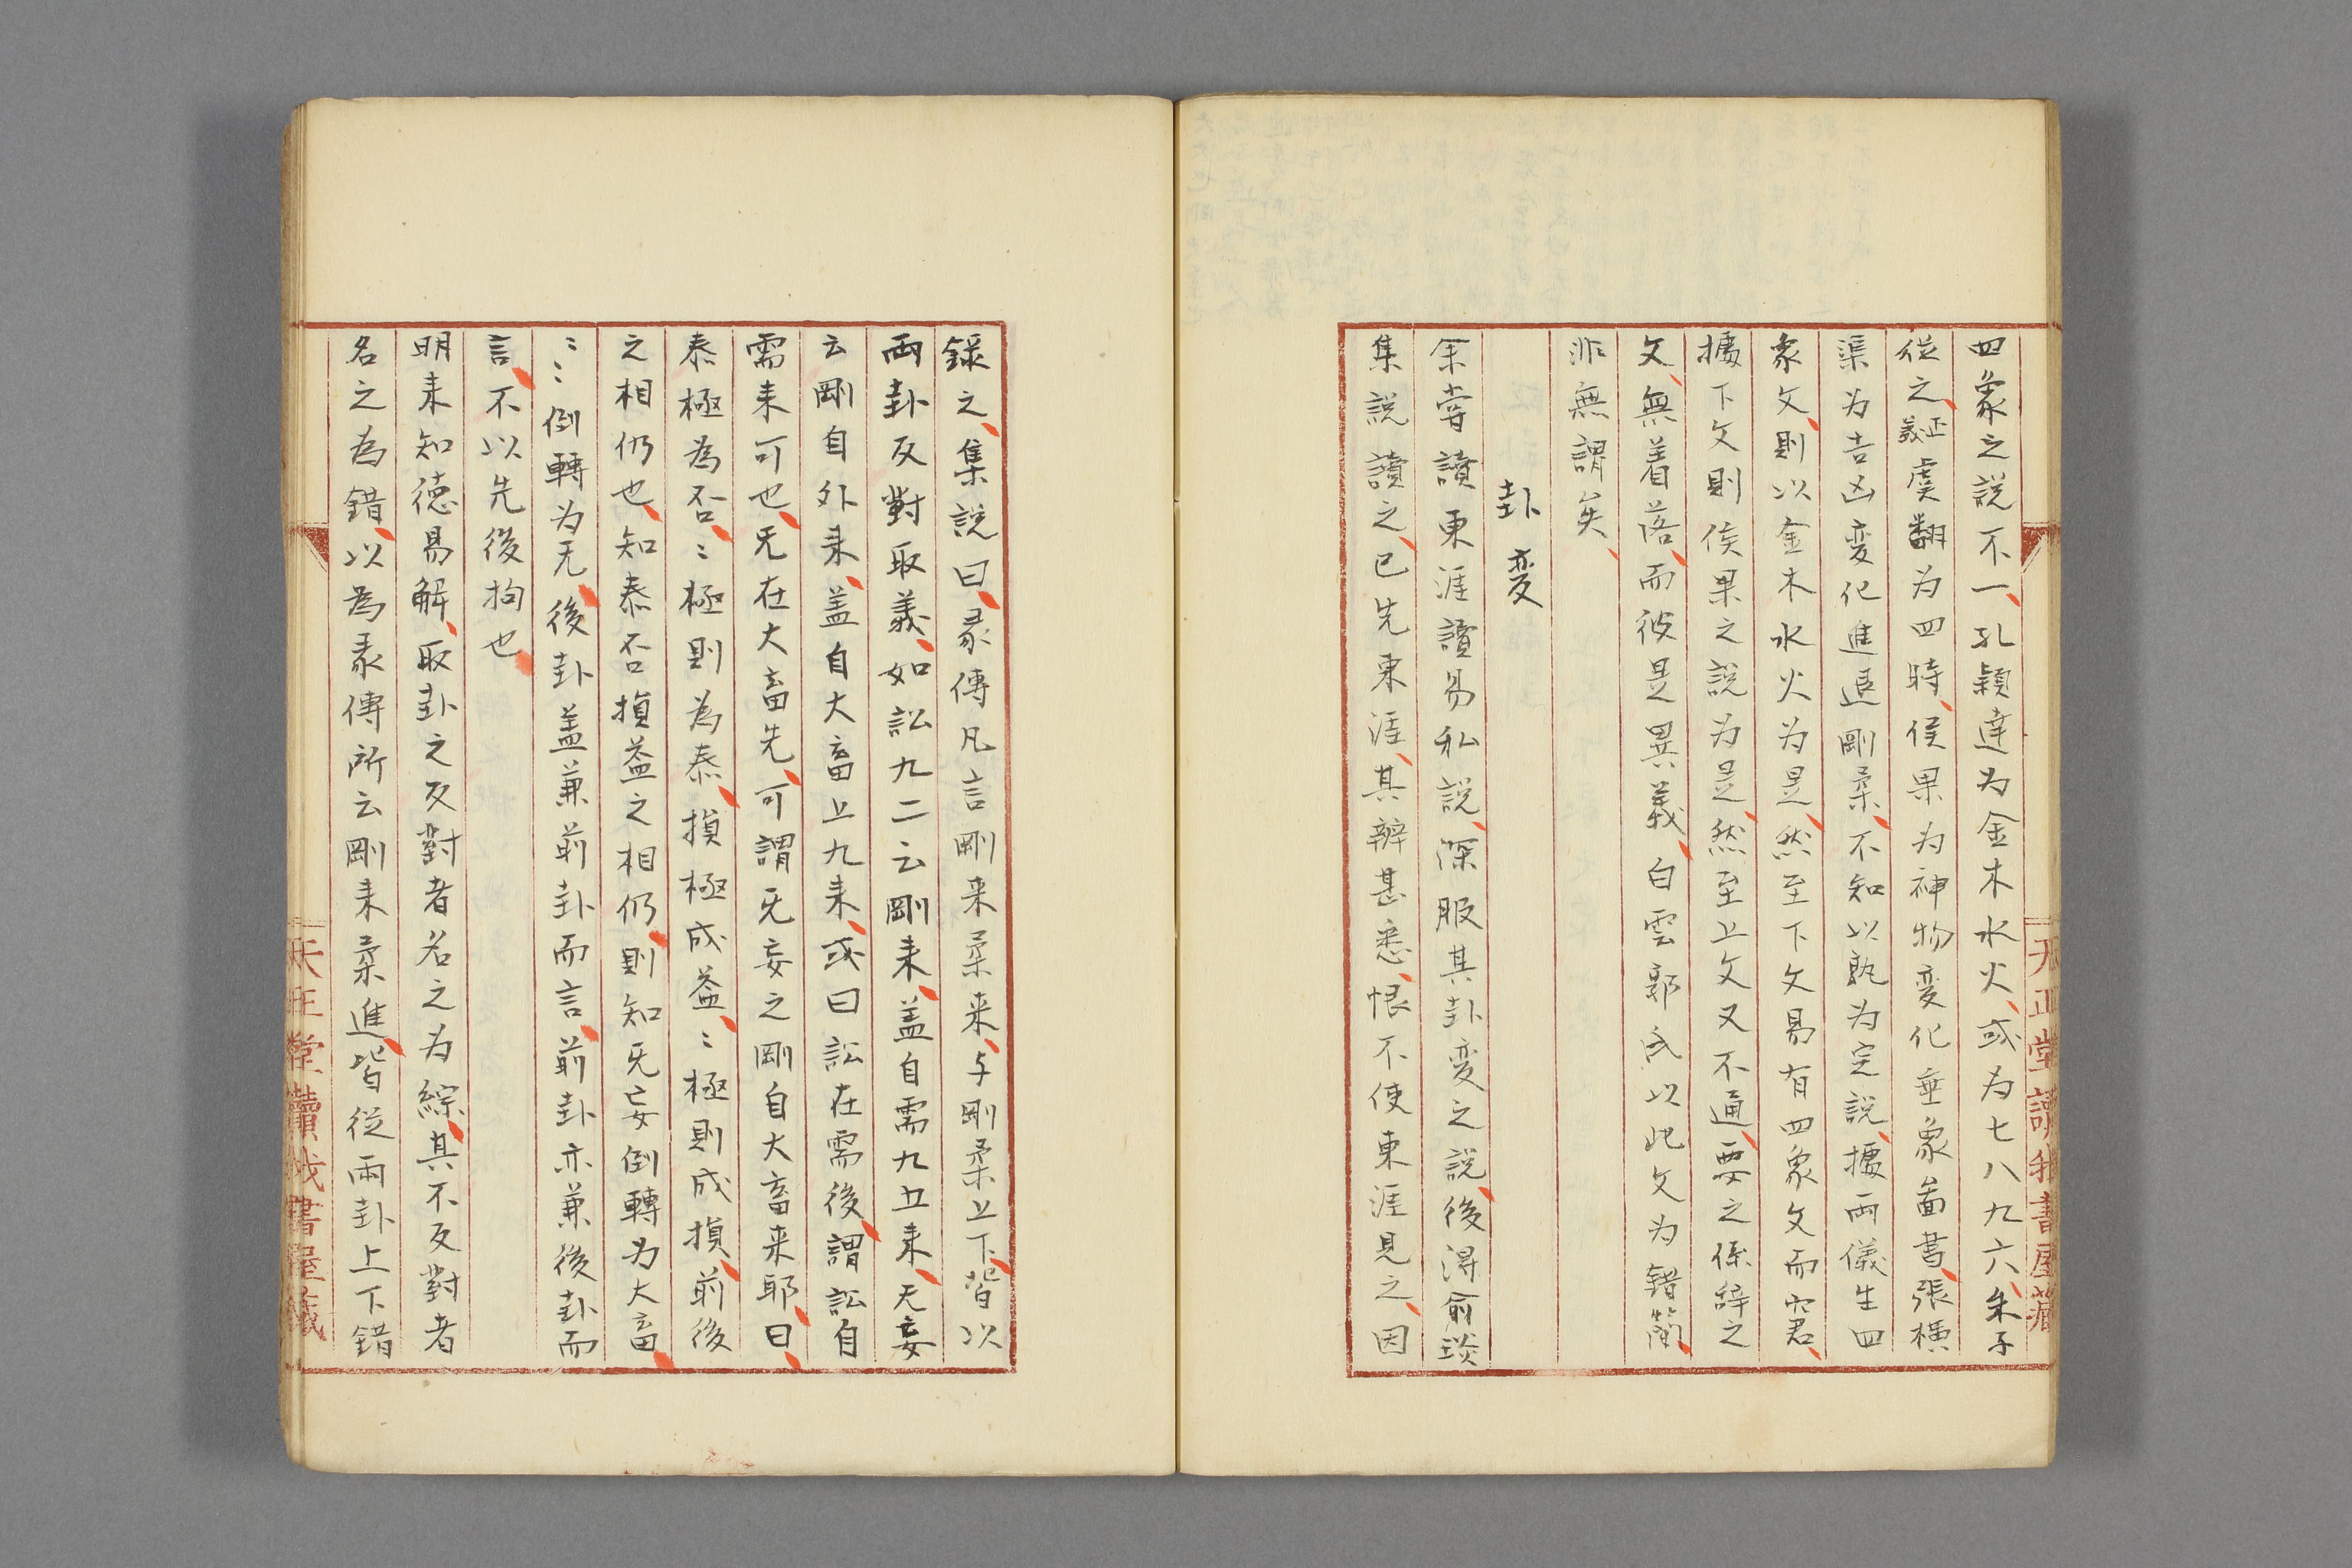 四象之説不一孔穎達为金木水火或为七八九六朱子
從之正義虞翻为四時侯果为神物変化垂象啚書張横
渠为吉凶変化進退剛柔不知以孰为定説據兩儀生四
象文則以金木水火为是然至下文易有四象文而窘
據下文則侯果之説为是然至上文又不通要之係辞之
文無着落而彼是異義白雲郭氏以此文为錯簡
非無謂矣
卦変
余嘗讀東涯讀易私説深服其卦変之説後得俞琰
集説讀之已先東涯其辨甚悉恨不使東涯見之因
錄之集説曰彖傳凡言剛来柔来与剛柔上下皆以
兩卦反對取義如訟九二云剛来盖自需九五来无妄
云剛自外来盖自大畜上九来或曰訟在需後謂訟自
需来可也无在大畜先可謂无妄之剛自大畜来耶曰
泰極為否〻極則為泰損極成益〻極則成損前後
之相仍也知泰否損益之相仍則知无妄倒轉为大畜
〻〻倒轉为无後卦盖兼前卦而言前卦亦兼後卦而
言不以先後拘也
明来知徳易解取卦之反對者名之为綜其不反對者
名之為錯以為彖傳所云剛来柔進皆從兩卦上下錯
天正堂讀我書屋藏
天正堂讀我書屋藏